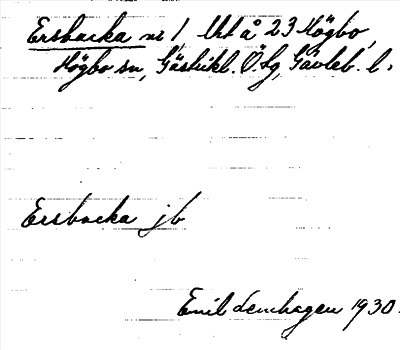 Ersbacka nr 1, Utt å 23 Högbo,
Högbo sn, Gästrikl. Ö. tg, Gävleb. l.
Ersbacka jb
Emil Lemhagen 1930.